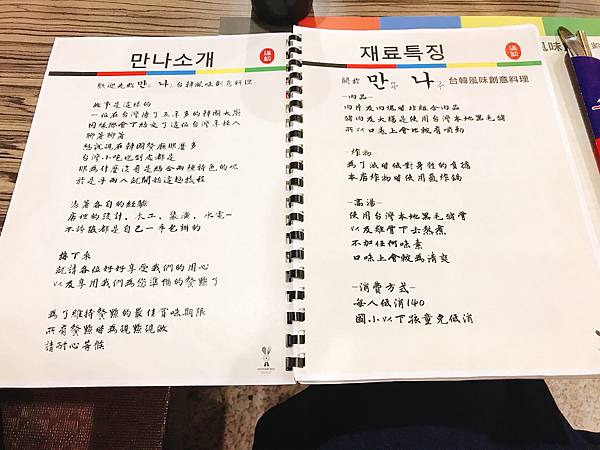 만나소개
歡迎光臨 만나 台韓風味創意料理
故事是這樣的
一位在台灣待了五年多的韓國大廚
因緣際會下結交了這位台灣年輕人
聊著聊著
總說現在韓國餐廳那麼多
台灣小吃也到處都是
那為什麼沒有是結合兩種特色的呢
於是乎兩人就開始這趟旅程
憑著各自的經驗
店裡的設計、木工、裝潢、水電…
不誇張都是自己一手包辦的
接下來
就請各位好好享受我們的用心
以及享用我們為您準備的餐點了
為了維持餐點的最佳賞味期限
所有餐點皆為現點現做
請耐心等候
재료특징
關於 만나 台韓風味創意料理
-肉品-
肉片及肉塊皆非組合肉品
豬肉及大腸是使用台灣本地黑毛豬
所以口感上會比較有嚼勁
-炸物-
為了減輕低對身體的負擔
本店炸物皆使用氣炸鍋
-高湯-
使用台灣本地黑毛豬骨
以及雞骨下去熬煮
不加任何味素
口味上會較為清爽
-消費方式-
每人低消140
國小以下孩童免低消
風味創意料